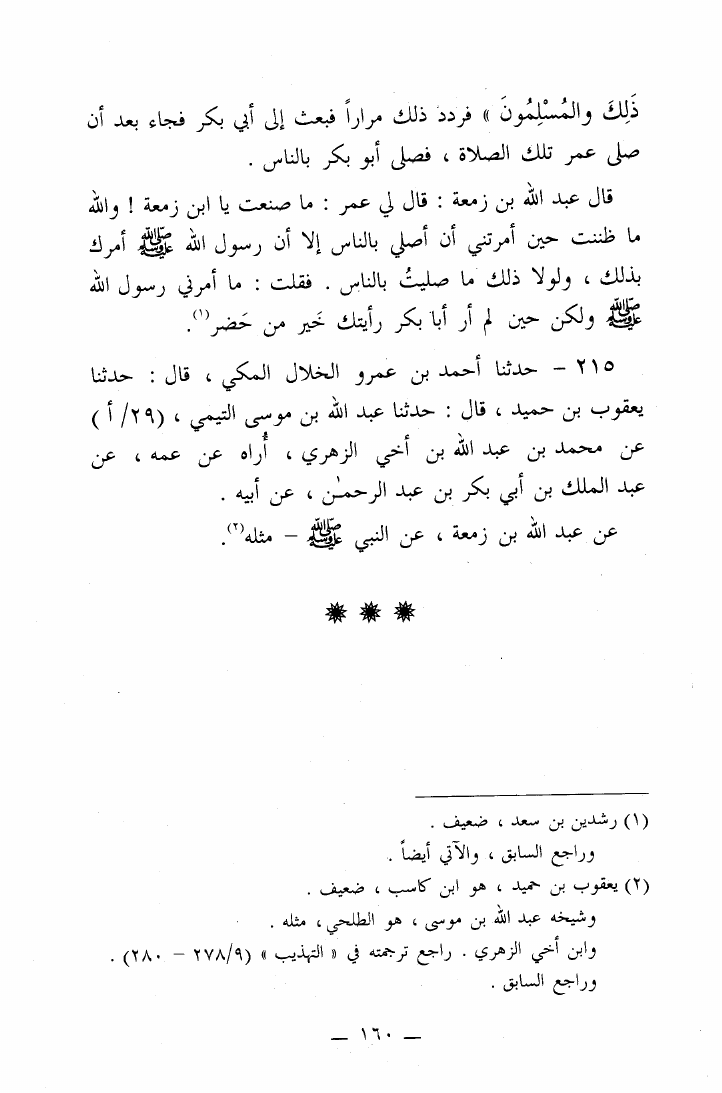 ذَلِكَ والمُسْلِمُونَ » فردد ذلك مراراً فبعث إلى أبي بكر فجاء بعد أن
صلى عمر تلك الصلاة ، فصلى أبو بكر بالناس .
قال عبد الله بن زمعة : قال لي عمر : ما صنعت يا ابن زمعة ! والله
ما ظننت حين أمرتني أن أصلي بالناس إلا أن رسول الله ﷺ أمرك
بذلك ، ولولا ذلك ما صليتُ بالناس . فقلت : ما أمرني رسول الله
ﷺ ولكن حين لم أر أبا بكر رأيتك خَير من حَضر(١).
٢١٥ – حدثنا أحمد بن عمرو الخلال المكي ، قال : حدثنا
يعقوب بن حميد ، قال : حدثنا عبد الله بن موسى التيمي ، (٢٩/ أ )
عن محمد بن عبد الله بن أخي الزهري ، أُراه عن عمه ، عن
عبد الملك بن أبي بكر بن عبد الرحمـٰن ، عن أبيه .
عن عبد الله بن زمعة ، عن النبي ﷺ – مثله(٢).
(١) رشدين بن سعد ، ضعيف .
وراجع السابق ، والآتي أيضاً .
(٢) يعقوب بن حميد ، هو ابن كاسب ، ضعيف .
وشيخه عبد الله بن موسى ، هو الطلحي ، مثله .
وابن أخي الزهري . راجع ترجمته في « التهذيب » (٢٧٨/٩ – ٢٨٠) .
وراجع السابق .
— ١٦٠ —